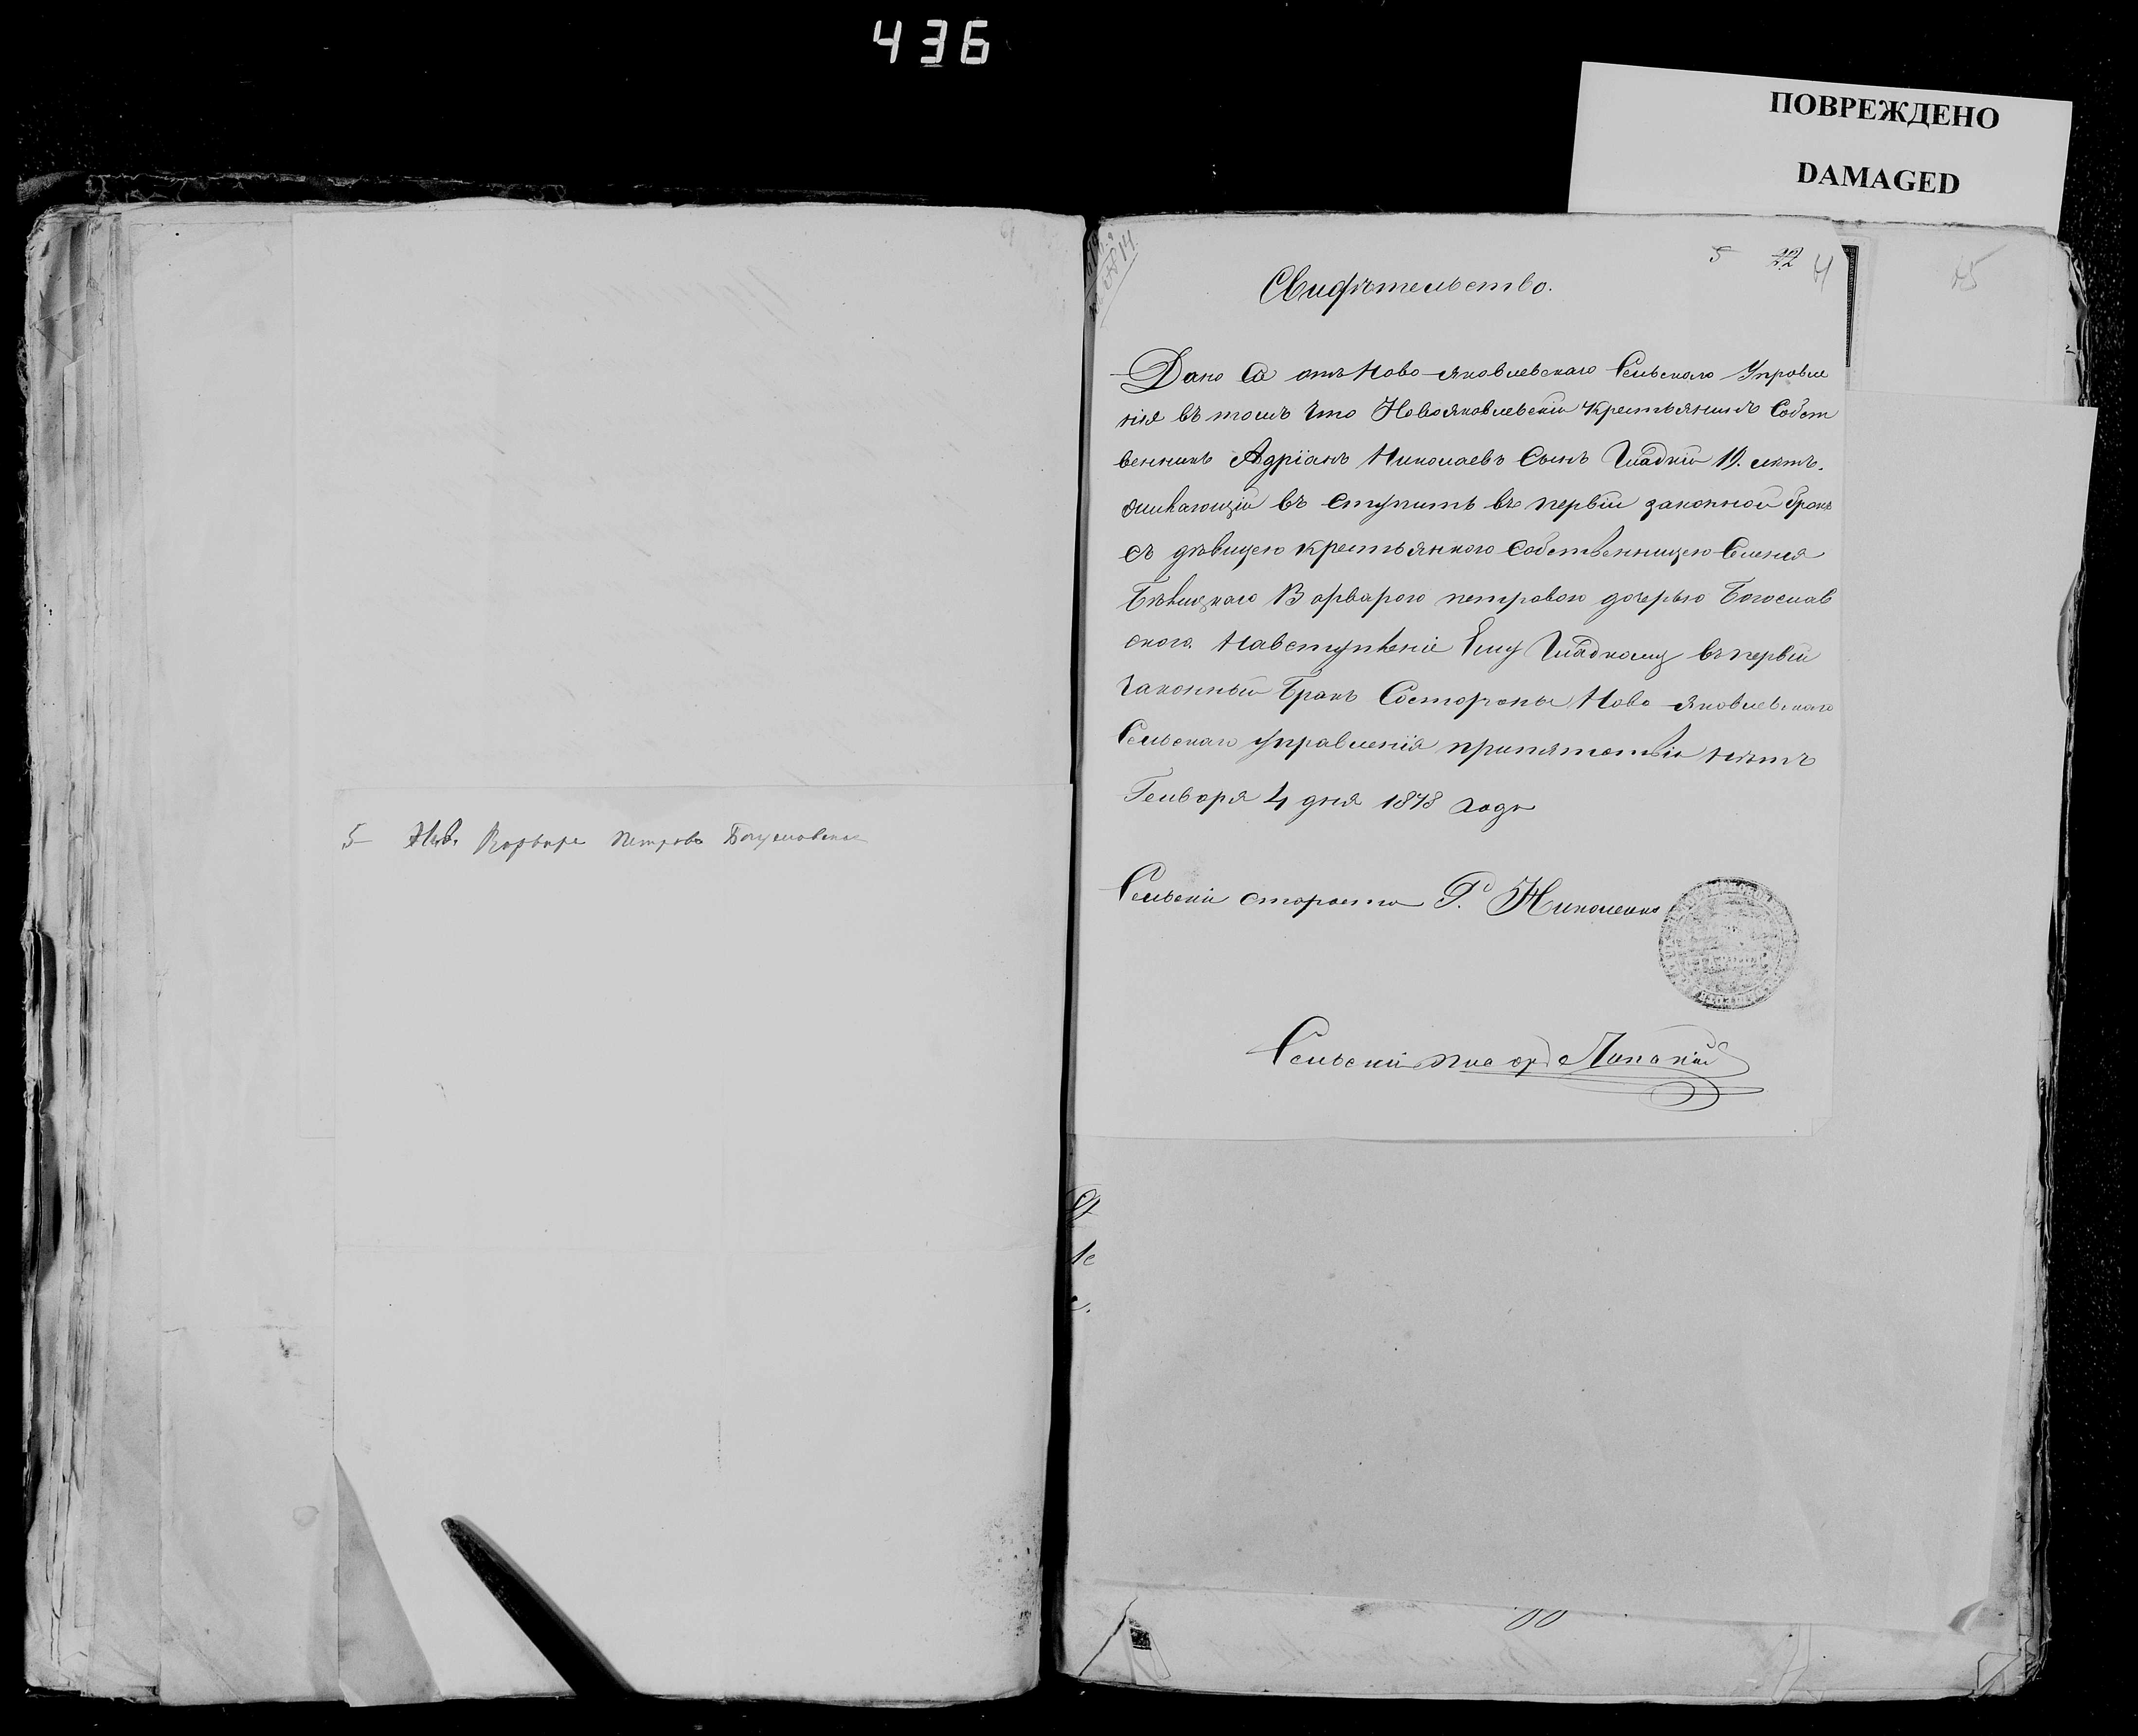 436
ПОВРЕЖДЕНО
DAMAGED
5 22
45
Свидѣтельство.
Дано Сіе отъ Ново-Яковлевскаго Сельскаго Управле
нія въ томъ что Новояковлевскій крестьянинъ Собст
венникъ Адріанъ Николаевъ Сынъ Гладкій 19. лѣтъ.
желающій въ ступить въ первій законной бракъ
съ дѣвицею крестьянкою Собственницею Селенія
Варварою петровою дочерью Богослав
ского. Навступленіе Ему Гладкому въ первій
Законный Бракъ Состороны Ново-Яковлевскаго
Сельскаго управленія припятствія нѣтъ
Генворя 4 дня 1878 года
Сельскій староста Г. Николенко
Сельскій писарь
5 Варвара Петрова